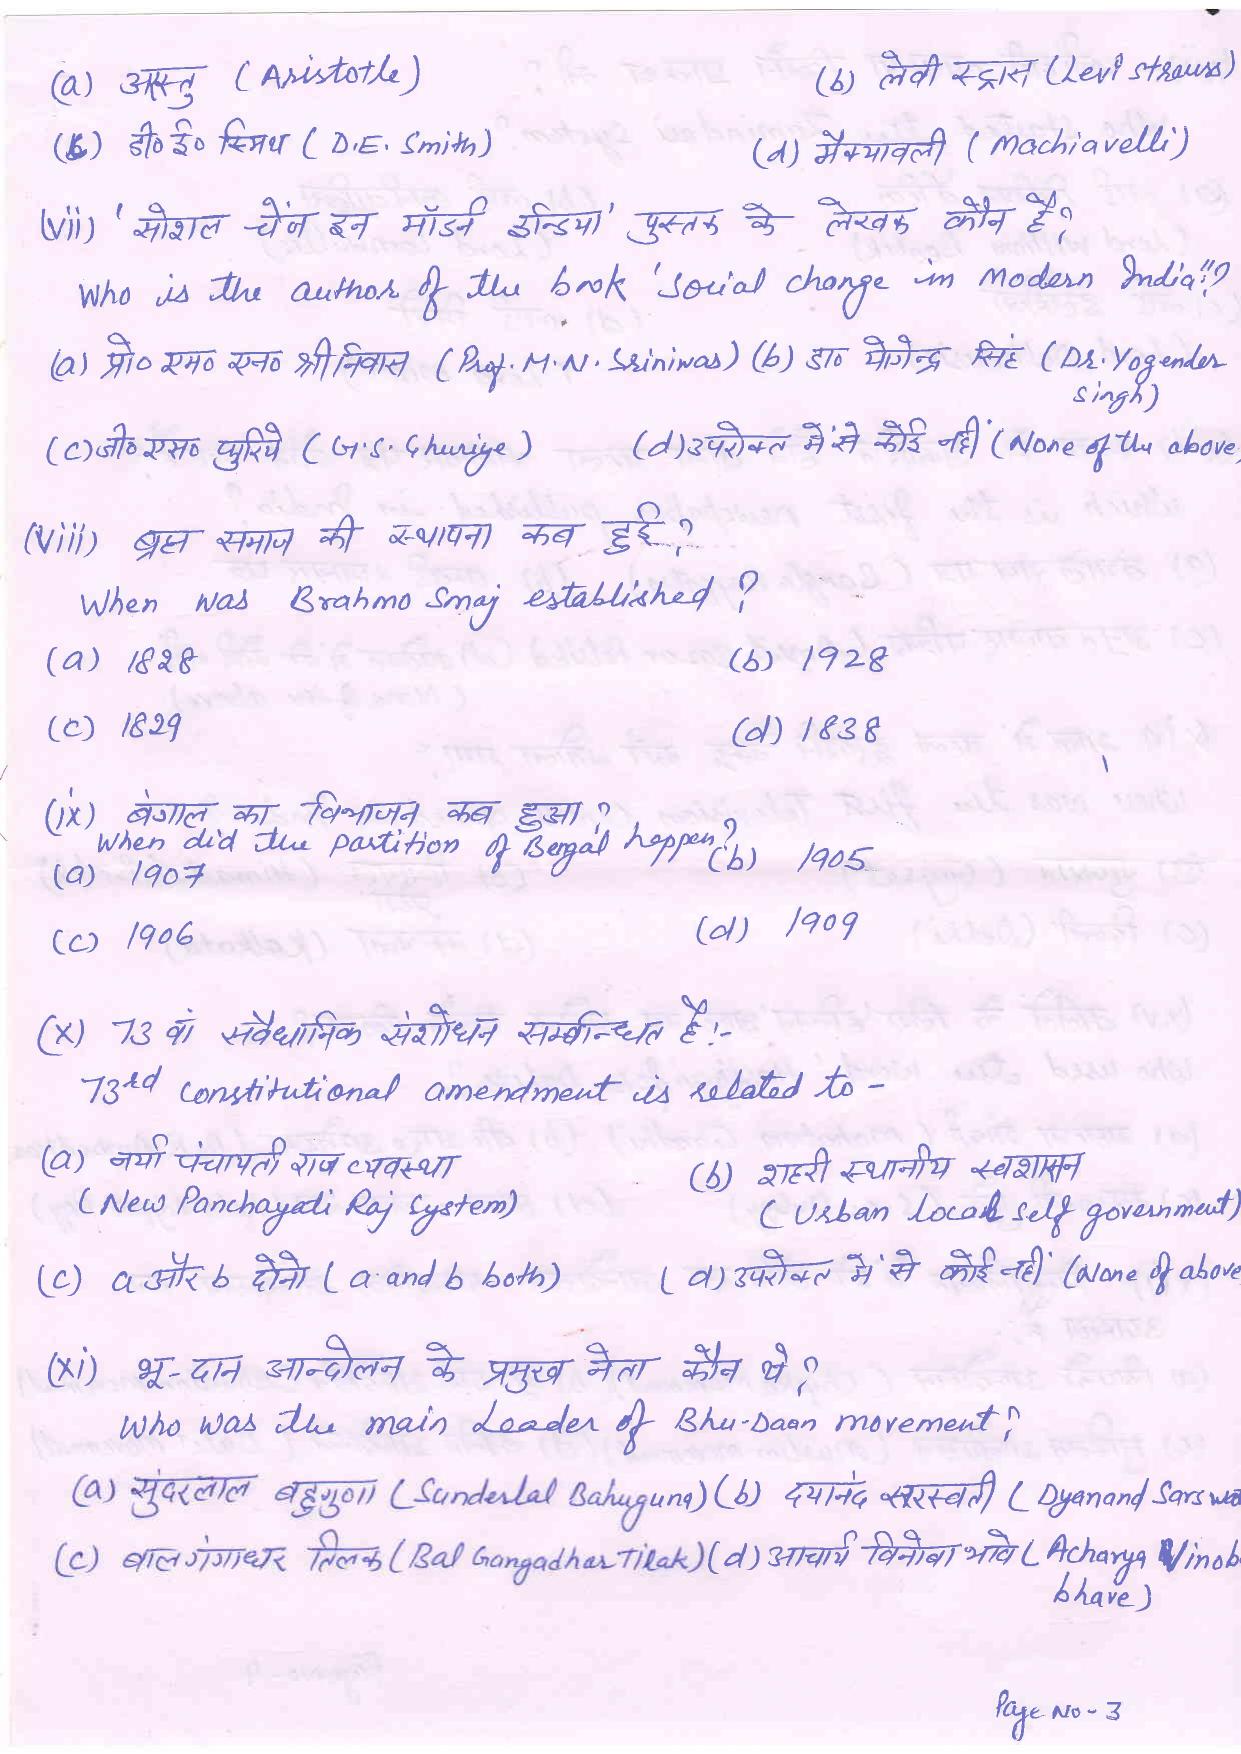 (a) अरस्तु (Aristotle) (b) लेवी स्ट्रास (Levi strauss)
(c) डी० ई० स्मिथ (D.E. Smith) (d) मैक्यावली (Machiavelli)
(vii) 'सोशल चेंज इन मॉडर्न इन्डिया' पुस्तक के लेखक कौन है?
Who is the author of the book 'Social change in Modern India"?
(a) प्रो० एम० एन० श्रीनिवास (Prof. M.N. Sriniwas) (b) डा० योगेन्द्र सिंह (Dr. Yogender
singh)
(c) जी० एस० घुरिये (G.S. Ghuriye) (d) उपरोक्त में से कोई नहीं (None of the above)
(viii) ब्रह्म समाज की स्थापना कब हुई?
When was Brahmo Smaj established?
(a) 1828 (b) 1928
(c) 1829 (d) 1838
(ix) बंगाल का विभाजन कब हुआ?
When did the partition of Bengal heppen?
(a) 1907 (b) 1905
(c) 1906 (d) 1909
(x) 73 वां संवैधानिक संशोधन सम्बन्धित है:-
73rd constitutional amendment is related to -
(a) नयी पंचायती राज व्यवस्था (b) शहरी स्थानीय स्वशासन
(New Panchayati Raj System) (Urban local self government)
(c) a और b दोनो (a and b both) (d) उपरोक्त में से कोई नहीं (None of above
(xi) भू-दान आन्दोलन के प्रमुख नेता कौन थे?
Who was the main Leader of Bhu-Daan movement?
(a) सुंदरलाल बहुगुणा (Sunderlal Bahuguna) (b) दयानंद सरस्वती (Dyanand Sarswa
(c) बाल गंगाधर तिलक (Bal Gangadhar Tilak) (d) आचार्य विनोबा भावे (Acharya Vinob
bhave)
Page No - 3